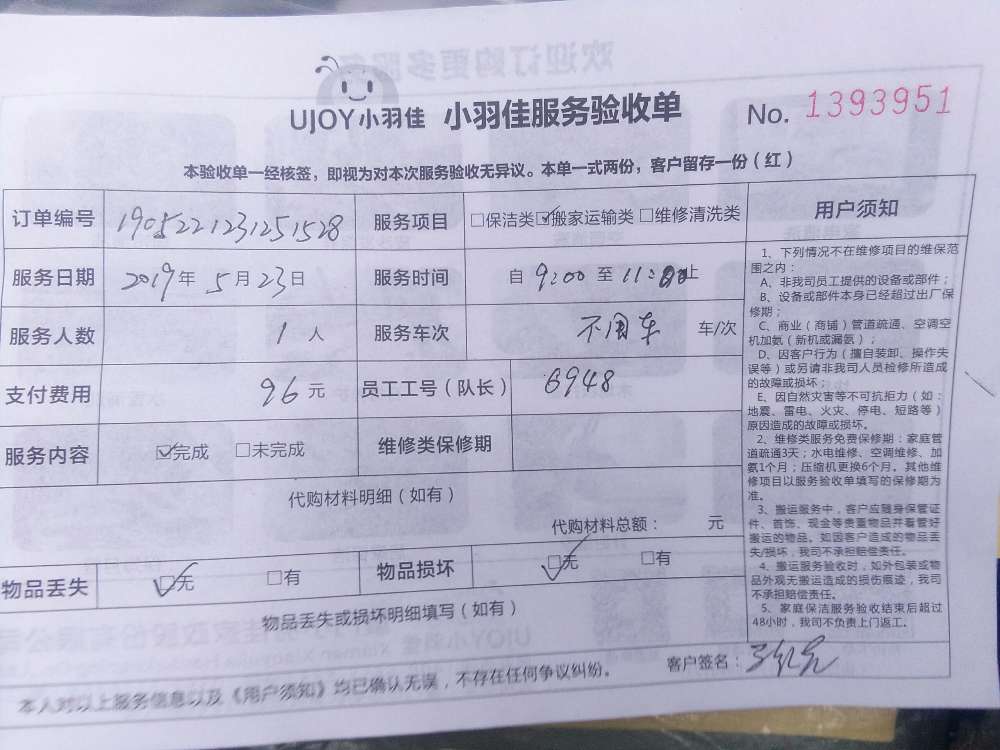 UJOY小羽佳 小羽佳服务验收单 No. 1393951
本验收单一经核签，即视为对本次服务验收无异议。本单一式两份，客户留存一份（红）
订单编号 190522123125​1528 服务项目 □保洁类 ☑搬家运输类 □维修清洗类
服务日期 2019年5月23日 服务时间 自 9:00 至 11:00 止
服务人数 1 人 服务车次 不用车 车/次
支付费用 96 元 员工工号（队长） 6948
服务内容 ☑完成 □未完成 维修类保修期
代购材料明细（如有）
代购材料总额： 元
物品丢失 ☑无 □有 物品损坏 ☑无 □有
物品丢失或损坏明细填写（如有）
客户签名：
本人对以上服务信息以及《用户须知》均已确认无误，不存在任何争议纠纷。
用户须知
1、下列情况不在维修项目的维保范
围之内：
A、非我司员工提供的设备或部件；
B、设备或部件本身已经超过出厂保
修期；
C、商业（商铺）管道疏通、空调空
机加氨（新机或漏氨）；
D、因客户行为（擅自装卸、操作失
误等）或另请非我司人员检修所造成
的故障或损坏；
E、因自然灾害等不可抗拒力（如：
地震、雷电、火灾、停电、短路等）
原因造成的故障或损坏。
2、维修类服务免费保修期：家庭管
道疏通3天；水电维修、空调维修、加
氨1个月；压缩机更换6个月。其他维
修项目以服务验收单填写的保修期为
准。
3、搬运服务中，客户应随身保管证
件、首饰、现金等贵重物品并看管好
搬运的物品。如因客户造成的物品丢
失/损坏，我司不承担赔偿责任。
4、搬运服务验收时，如外包装或物
品外观无搬运造成的损伤痕迹，我司
不承担赔偿责任。
5、家庭保洁服务验收结束后超过
48小时，我司不负责上门返工。